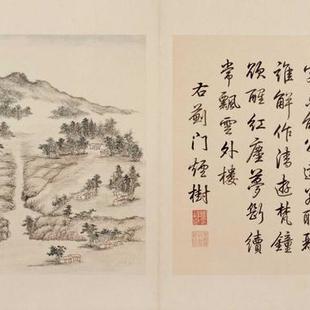 誰解作清遊梵鐘
欲醒紅塵夢斷續
常飄雲外樓
右薊門煙樹